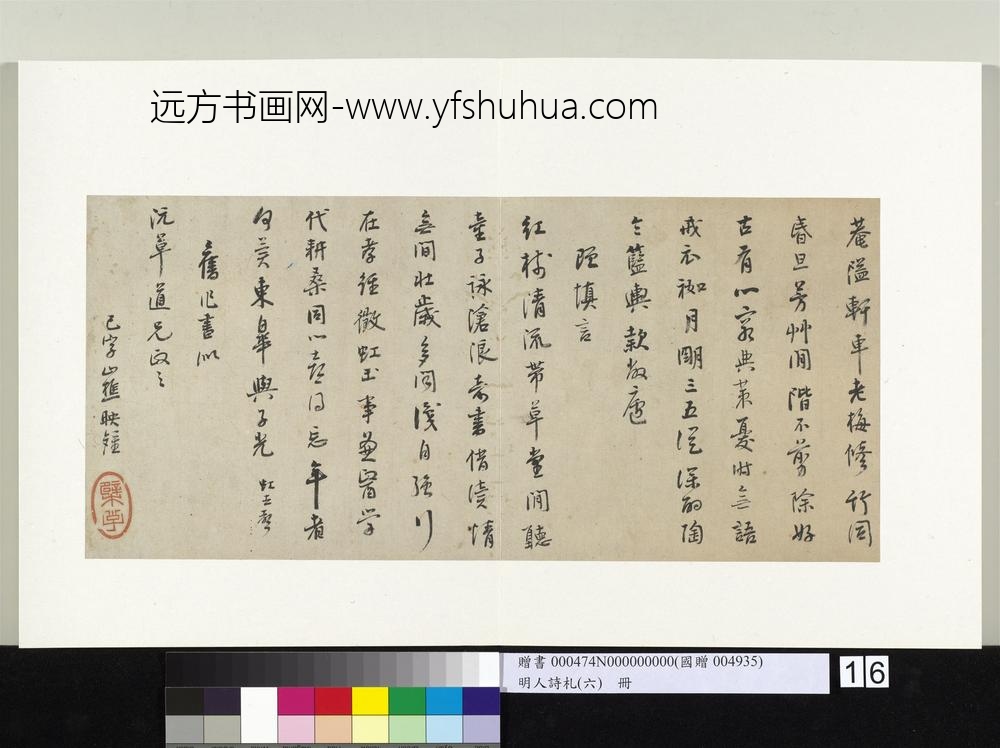 远方书画网-www.yfshuhua.com
菴隘軒車老梅修竹同
昏旦芳艸閒階不剪除好
古有心窮典策憂時無語
戒衣袽月明三五溪深酌陶
令籃輿款敝廬
紅樹清流帶草堂閒聽
童子詠滄浪素書借讀情
無間壯歲多閒淺自強行
在孝經徵虹玉事兼醫學
代耕桑同心喜得忘年者
何羨東皋與子光
舊作書似
沅草道兄政之
贈書 000474N000000000(國贈 004935)
明人詩札(六) 冊
16